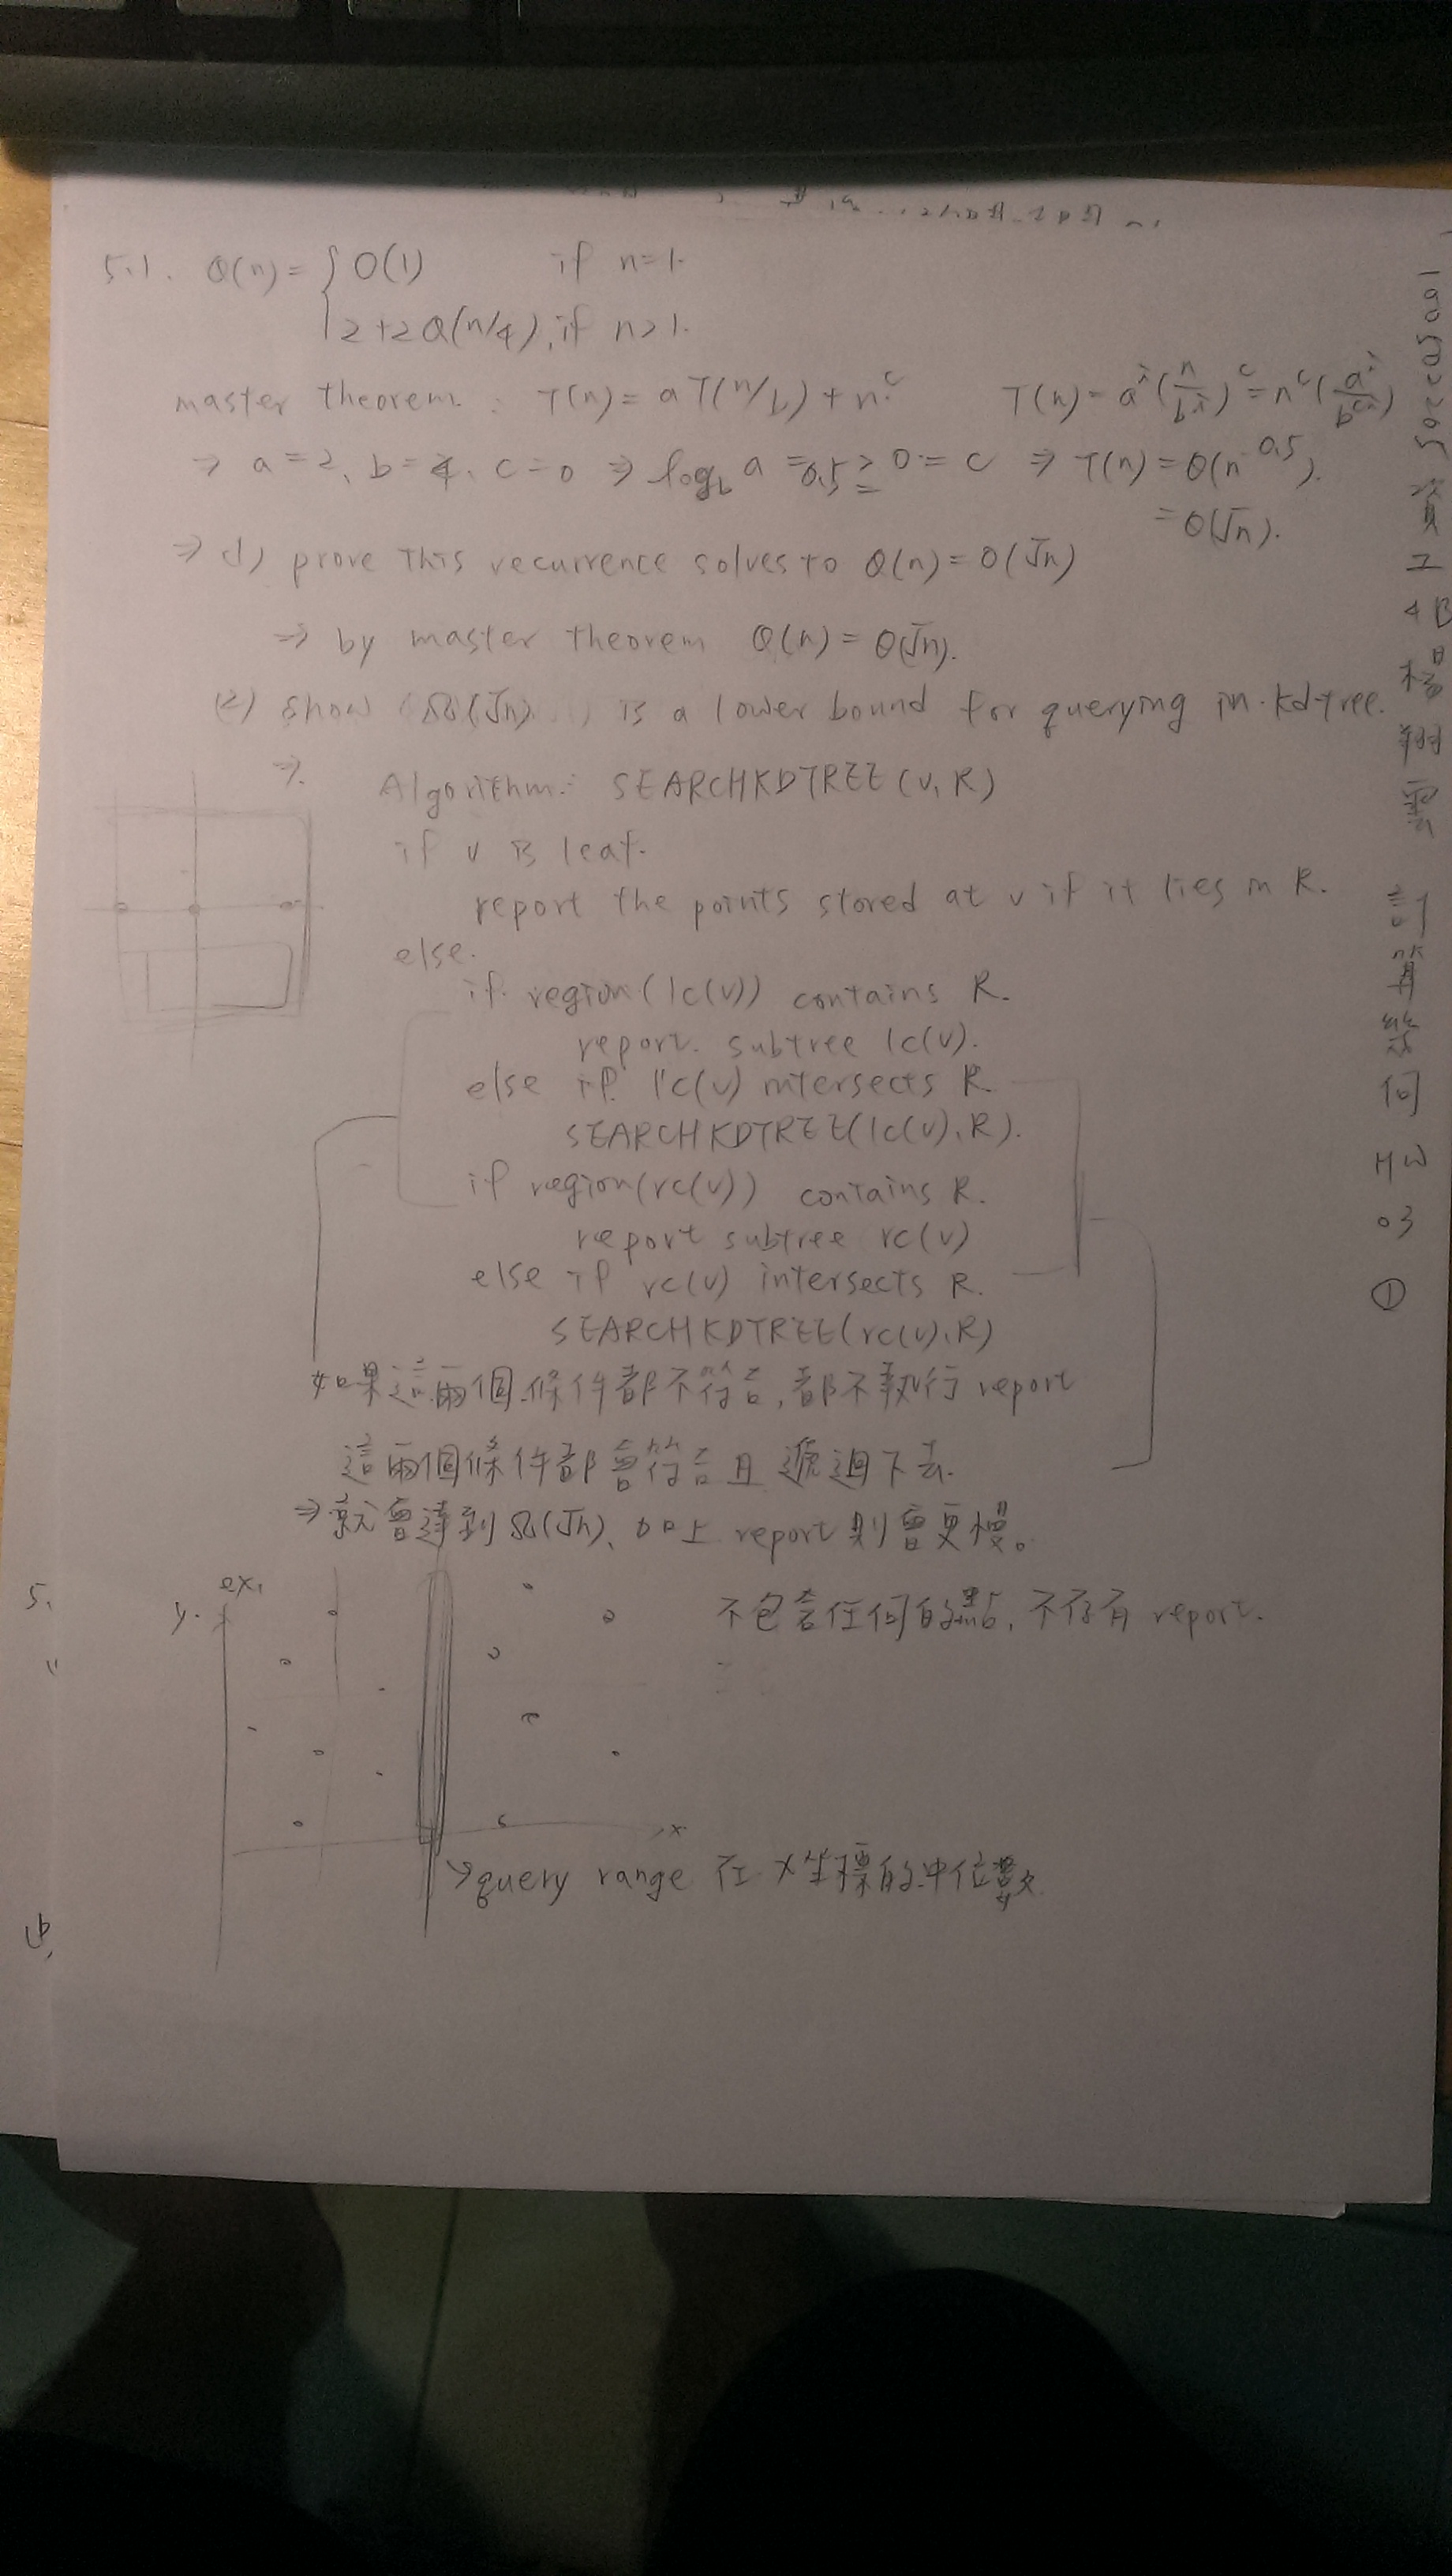 5.1. Q(n) = { O(1) if n=1.
2+2Q(n/4), if n>1.
master theorem : T(n) = aT(n/b) + n^c T(n) = a^i (n/b^i)^c = n^c (a^i/b^ci)
⇒ a=2, b=4, c=0 ⇒ log_b a = 0.5 ≥ 0 = c ⇒ T(n) = Θ(n^0.5).
= Θ(√n).
⇒ (1) prove this recurrence solves to Q(n) = O(√n)
⇒ by master theorem Q(n) = Θ(√n).
(2) show Ω(√n) is a lower bound for querying in kd-tree.
⇒ Algorithm: SEARCHKDTREE(v, R)
if v is leaf.
report the points stored at v if it lies in R.
else.
if region(lc(v)) contains R.
report subtree lc(v).
else if lc(v) intersects R.
SEARCHKDTREE(lc(v), R).
if region(rc(v)) contains R.
report subtree rc(v)
else if rc(v) intersects R.
SEARCHKDTREE(rc(v), R)
如果這兩個條件都不符合, 都不執行 report
這兩個條件都會符合且遞迴下去.
⇒ 就會達到 Ω(√n), 加上 report 則會更慢。
ex,
y
不包含任何的點, 不存有 report.
x
query range 在 x 坐標的中位數
資工4B 楊翔雲
計算幾何 HW 03 ①
5.